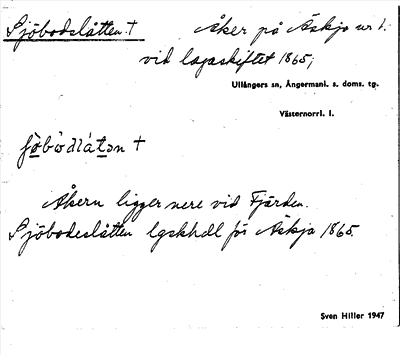 Sjöbodslåtten. † Åker på Äskja nr 1.
vid lagaskiftet 1865;
Ullångers sn, Ångermanl. s. doms. tg.
Västernorrl. l.
Åkern ligger nere vid Fjärden.
Sjöbodeslåtten lgskhdl för Äskja 1865.
Sven Hiller 1947